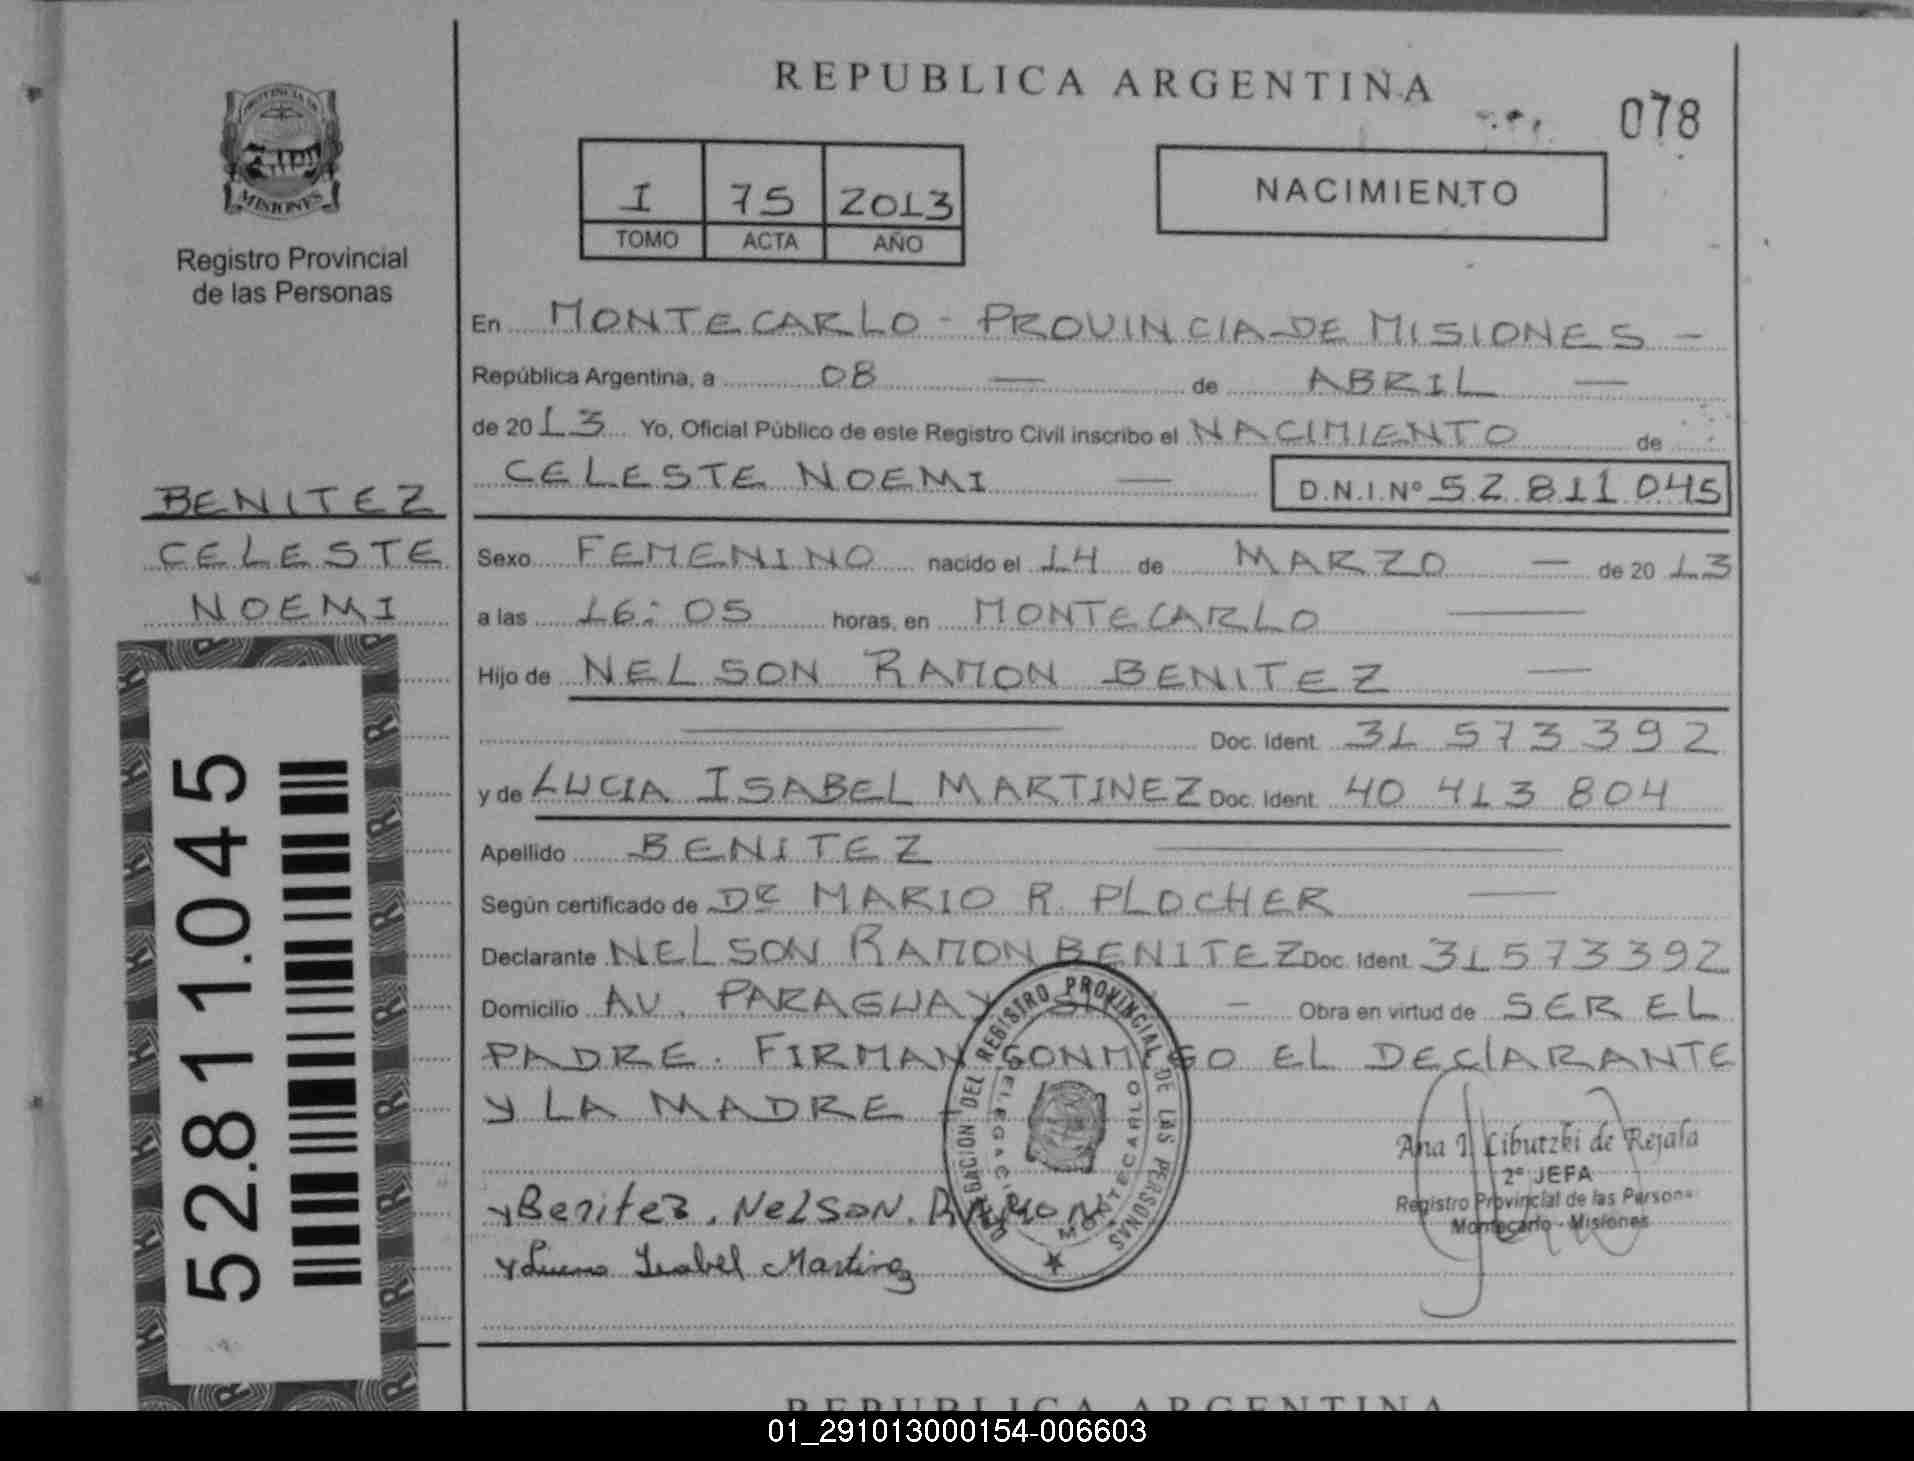 REPUBLICA ARGENTINA
078
PROVINCIA DE
MISIONES
Registro Provincial
de las Personas
I 75 2013
TOMO ACTA AÑO
NACIMIENTO
En MONTECARLO - PROVINCIA DE MISIONES -
República Argentina, a 08 — de ABRIL —
de 2013 Yo, Oficial Público de este Registro Civil inscribo el NACIMIENTO de
CELESTE NOEMI — D.N.I.Nº 52 811 045
BENITEZ
CELESTE
NOEMI
Sexo FEMENINO nacido el 14 de MARZO — de 2013
a las 16:05 horas, en MONTECARLO —
Hijo de NELSON RAMON BENITEZ —
— Doc. Ident. 31 573 392
y de LUCIA ISABEL MARTINEZ Doc. Ident. 40 413 804
Apellido BENITEZ —
Según certificado de DR MARIO R. PLOCHER —
Declarante NELSON RAMON BENITEZ Doc. Ident. 31573392
Domicilio AV. PARAGUAY S/N - Obra en virtud de SER EL
PADRE. FIRMAN CONMIGO EL DECLARANTE
Y LA MADRE
Benitez, NELSON, RAMON
Isabel Martinez
DELEGACION DEL REGISTRO PROVINCIAL DE LAS PERSONAS
DELEGACION
MONTECARLO
Ana I. Libutzki de Rejala
2º JEFA
Registro Provincial de las Personas
Montecarlo - Misiones
52.811.045
REPUBLICA ARGENTINA
01_291013000154-006603